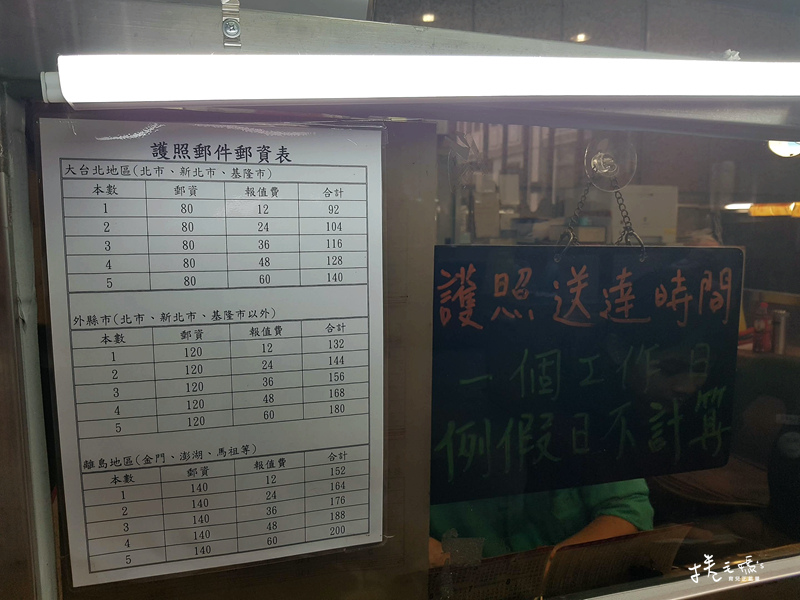 護照郵件郵資表
大台北地區(北市、新北市、基隆市)
本數 郵資 報值費 合計
1 80 12 92
2 80 24 104
3 80 36 116
4 80 48 128
5 80 60 140
外縣市(北市、新北市、基隆市以外)
本數 郵資 報值費 合計
1 120 12 132
2 120 24 144
3 120 36 156
4 120 48 168
5 120 60 180
離島地區(金門、澎湖、馬祖等)
本數 郵資 報值費 合計
1 140 12 152
2 140 24 164
3 140 36 176
4 140 48 188
5 140 60 200
護照送達時間
一個工作日
例假日不計算